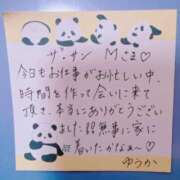 ザ・サン Mさま♡
今日もお仕事がお忙しい中、
時間を作って会いに来て
頂き、本当にありがとうござい
ました 無事に家に
着いたかなぁ〜♡
ゆうか